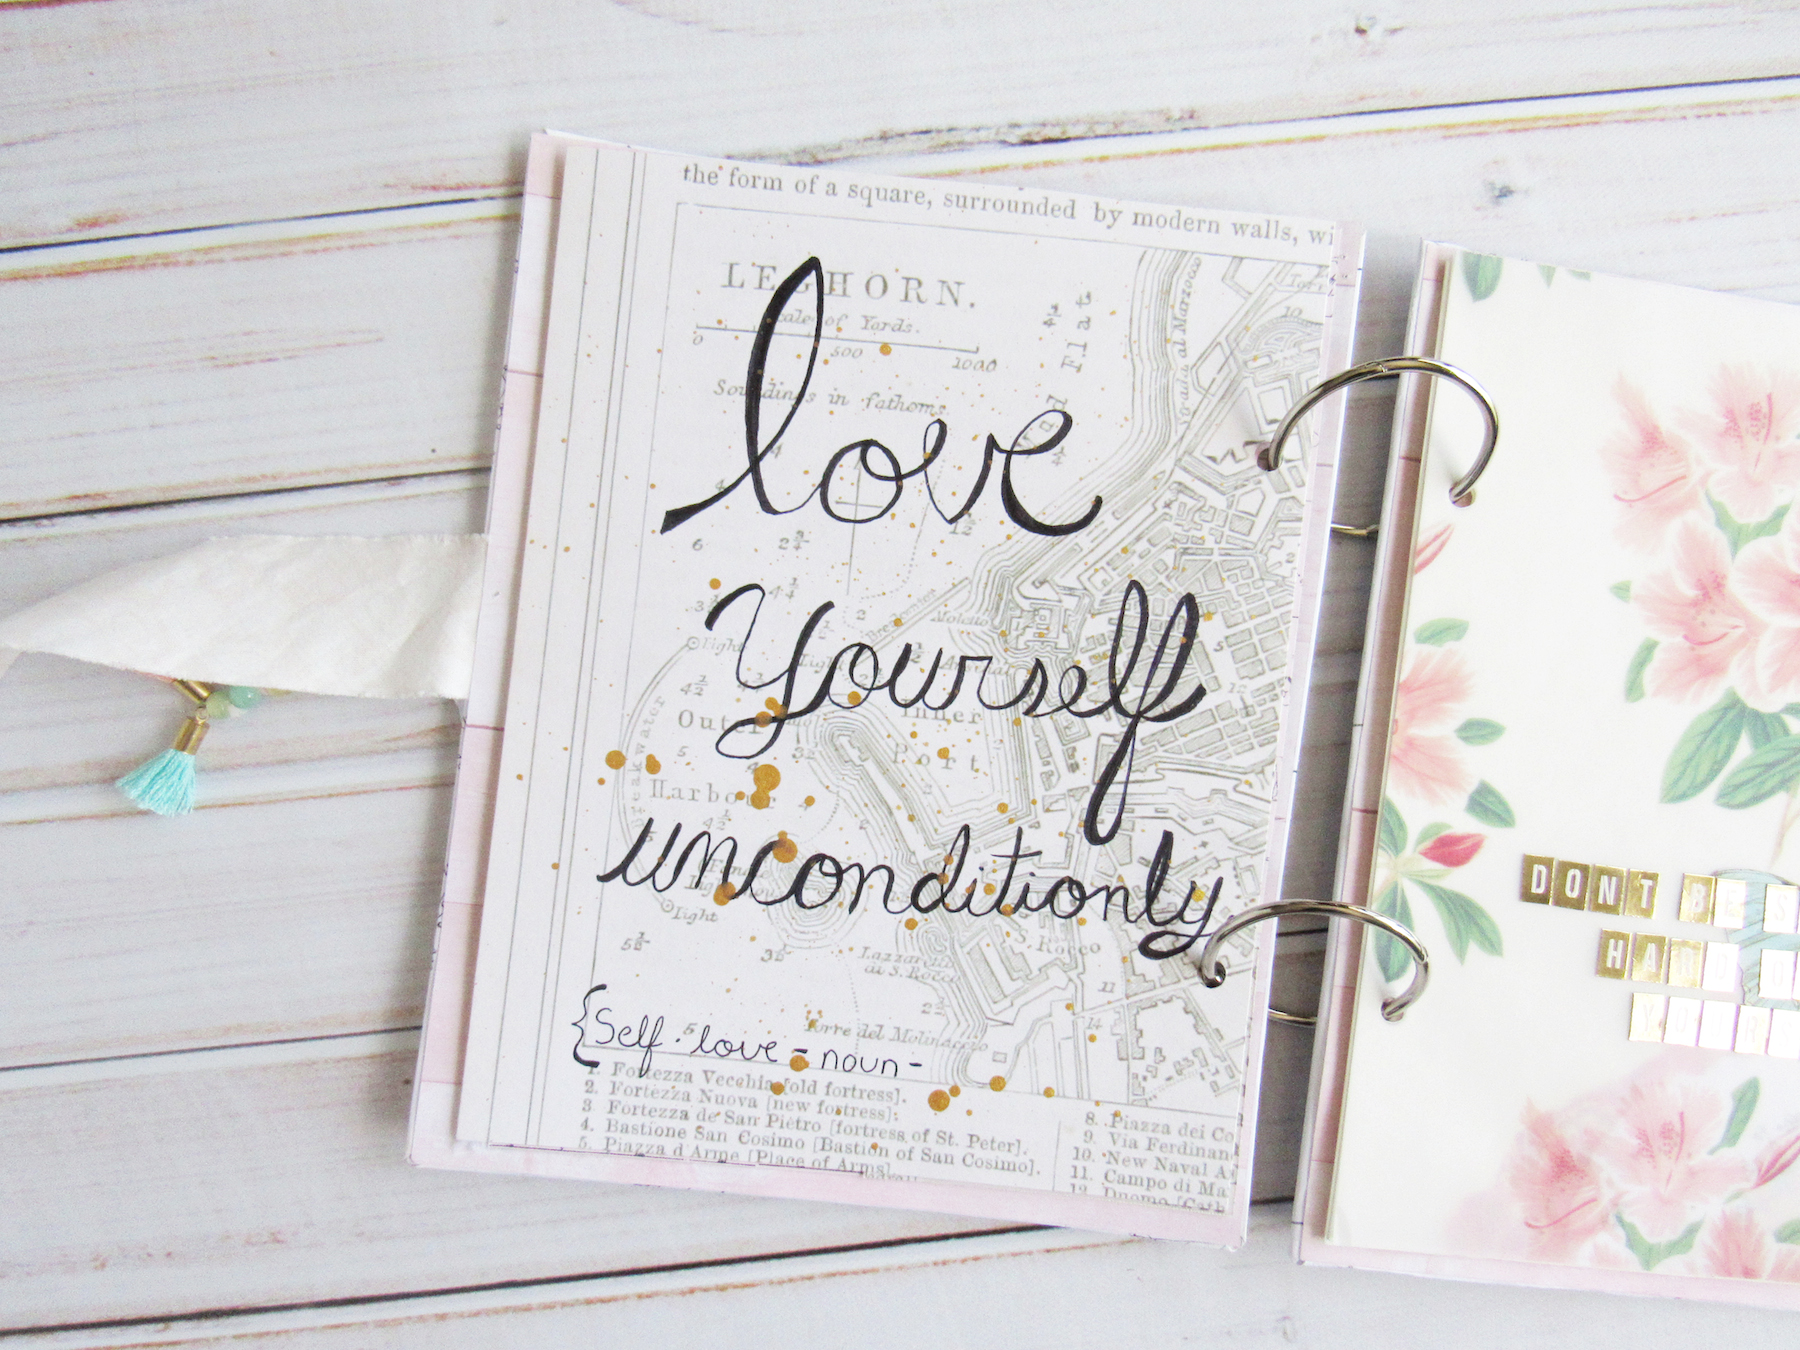 the form of a square, surrounded by modern walls, wi
LEGHORN.
Scale of Yards.
0 500 1000
Soundings in fathoms.
Mud Flat
love
Yourself
unconditionly
6
Breakwater
Moletto
Light
Light
Outer
Harbour
Inner
Port
Light
S. Rocco
Lazzar
di S. Rocco
Torre del Molinaccio
10
11
14
{Self. love - noun -
1. Fortezza Vecchia [old fortress].
2. Fortezza Nuova [new fortress].
3 Fortezza de San Pietro [fortress of St. Peter].
4. Bastione San Cosimo [Bastion of San Cosimo].
5. Piazza d'Arme [Place of Arms].
8. Piazza dei Co
9. Via Ferdinand
10. New Naval A
11. Campo di Ma
12. Duomo [Cath
DONT BE S
HARD O
YOURS